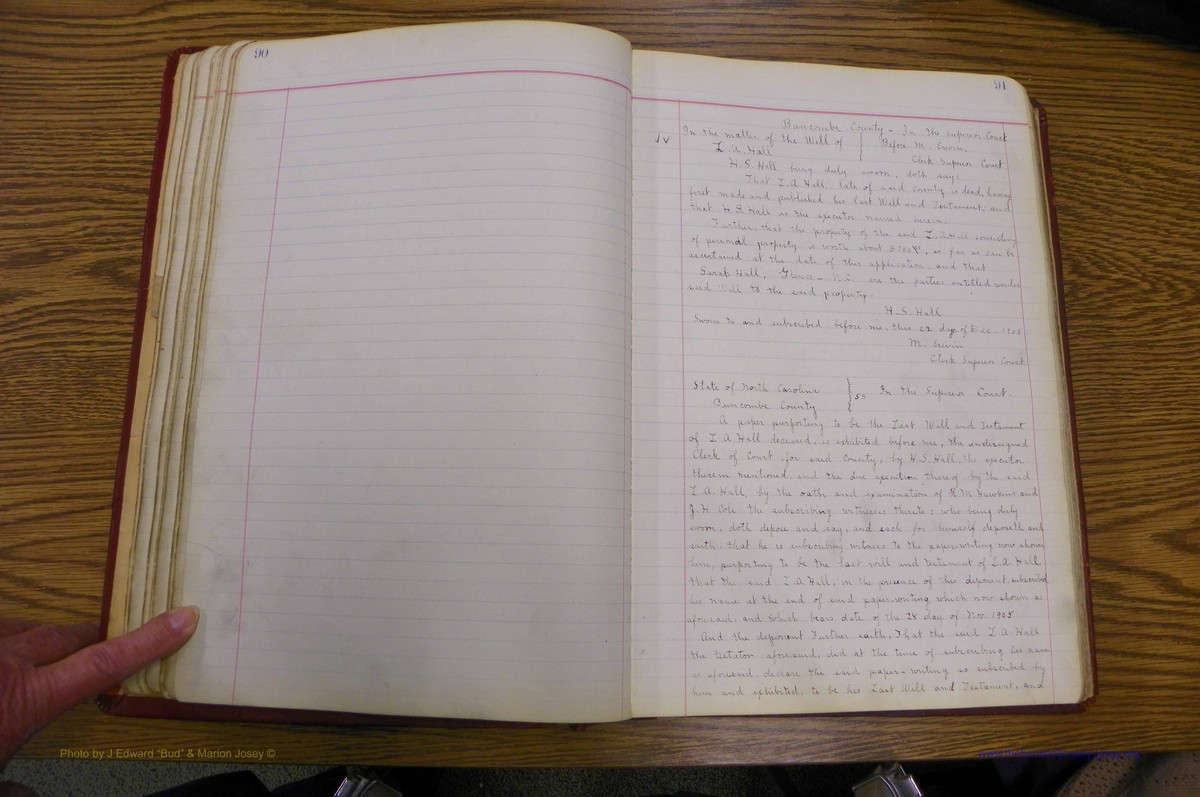 90
91
Buncombe County - In the Superior Court
In the matter of the Will of } Before M. Erwin,
L. A. Hall } Clerk Superior Court
H. S. Hall being duly sworn, doth say:
That L. A. Hall, late of said County is dead, having
first made and published his Last Will and Testament, and
that H. S. Hall is the executor named herein.
Further, that the property of the said L. A. Hall consisting
of personal property is worth about so far as can be
ascertained at the date of this application, and that
Sarah Hall, N.C. are the parties entitled under
said Will to the said property.
H. S. Hall
Sworn to and subscribed before me, this 22 day of Dec. 1905
M. Erwin
Clerk Superior Court.
State of North Carolina } ss In the Superior Court.
Buncombe County
A paper purporting to be the Last Will and Testament
of L. A. Hall deceased, is exhibited before me, the undersigned
Clerk of Court for said County, by H. S. Hall, the executor
therein mentioned, and the due execution thereof by the said
L. A. Hall, by the oath and examination of R. M. Hawkins and
J. H. Cole the subscribing witnesses thereto; who being duly
sworn, doth depose and say, and each for himself deposeth and
saith, that he is subscribing witness to the paper-writing now shown
him, purporting to be the last will and testament of L. A. Hall
that the said L. A. Hall, in the presence of this deponent, subscribed
his name at the end of said paper-writing which now shown as
aforesaid, and which bears date of the 28 day of Nov. 1905
And the deponent Further saith, That the said L. A. Hall
the Testator aforesaid, did at the time of subscribing his name
as aforesaid, declare the said paper-writing so subscribed by
him and exhibited, to be his Last Will and Testament, and
Photo by J Edward "Bud" & Marion Josey ©